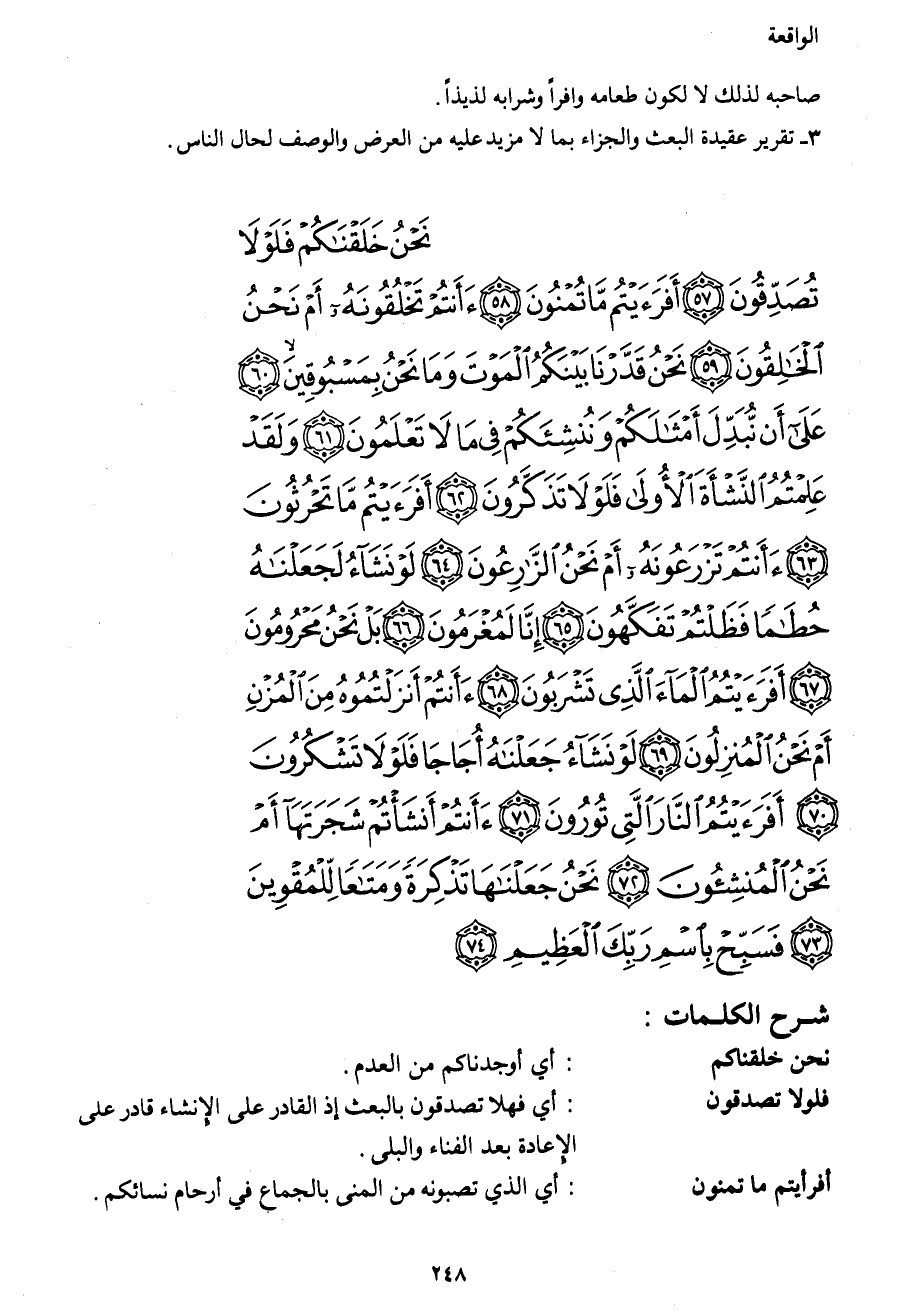 الواقعة
صاحبه لذلك لا لكون طعامه وافراً وشرابه لذيذاً.
٣ـ تقرير عقيدة البعث والجزاء بما لا مزيد عليه من العرض والوصف لحال الناس.
نَحْنُ خَلَقْنَٰكُمْ فَلَوْلَا
تُصَدِّقُونَ ﴿٥٧﴾ أَفَرَءَيْتُم مَّا تُمْنُونَ ﴿٥٨﴾ ءَأَنتُمْ تَخْلُقُونَهُۥٓ أَمْ نَحْنُ
ٱلْخَٰلِقُونَ ﴿٥٩﴾ نَحْنُ قَدَّرْنَا بَيْنَكُمُ ٱلْمَوْتَ وَمَا نَحْنُ بِمَسْبُوقِينَ ﴿٦٠﴾
عَلَىٰٓ أَن نُّبَدِّلَ أَمْثَٰلَكُمْ وَنُنشِئَكُمْ فِى مَا لَا تَعْلَمُونَ ﴿٦١﴾ وَلَقَدْ
عَلِمْتُمُ ٱلنَّشْأَةَ ٱلْأُولَىٰ فَلَوْلَا تَذَكَّرُونَ ﴿٦٢﴾ أَفَرَءَيْتُم مَّا تَحْرُثُونَ
﴿٦٣﴾ ءَأَنتُمْ تَزْرَعُونَهُۥٓ أَمْ نَحْنُ ٱلزَّٰرِعُونَ ﴿٦٤﴾ لَوْ نَشَآءُ لَجَعَلْنَٰهُ
حُطَٰمًا فَظَلْتُمْ تَفَكَّهُونَ ﴿٦٥﴾ إِنَّا لَمُغْرَمُونَ ﴿٦٦﴾ بَلْ نَحْنُ مَحْرُومُونَ
﴿٦٧﴾ أَفَرَءَيْتُمُ ٱلْمَآءَ ٱلَّذِى تَشْرَبُونَ ﴿٦٨﴾ ءَأَنتُمْ أَنزَلْتُمُوهُ مِنَ ٱلْمُزْنِ
أَمْ نَحْنُ ٱلْمُنزِلُونَ ﴿٦٩﴾ لَوْ نَشَآءُ جَعَلْنَٰهُ أُجَاجًا فَلَوْلَا تَشْكُرُونَ
﴿٧٠﴾ أَفَرَءَيْتُمُ ٱلنَّارَ ٱلَّتِى تُورُونَ ﴿٧١﴾ ءَأَنتُمْ أَنشَأْتُمْ شَجَرَتَهَآ أَمْ
نَحْنُ ٱلْمُنشِـُٔونَ ﴿٧٢﴾ نَحْنُ جَعَلْنَٰهَا تَذْكِرَةً وَمَتَٰعًا لِّلْمُقْوِينَ
﴿٧٣﴾ فَسَبِّحْ بِٱسْمِ رَبِّكَ ٱلْعَظِيمِ ﴿٧٤﴾
شـرح الكلـمات :
نحن خلقناكم : أي أوجدناكم من العدم.
فلولا تصدقون : أي فهلا تصدقون بالبعث إذ القادر على الإنشاء قادر على
الإعادة بعد الفناء والبلى.
أفرأيتم ما تمنون : أي الذي تصبونه من المنى بالجماع في أرحام نسائكم.
٢٤٨